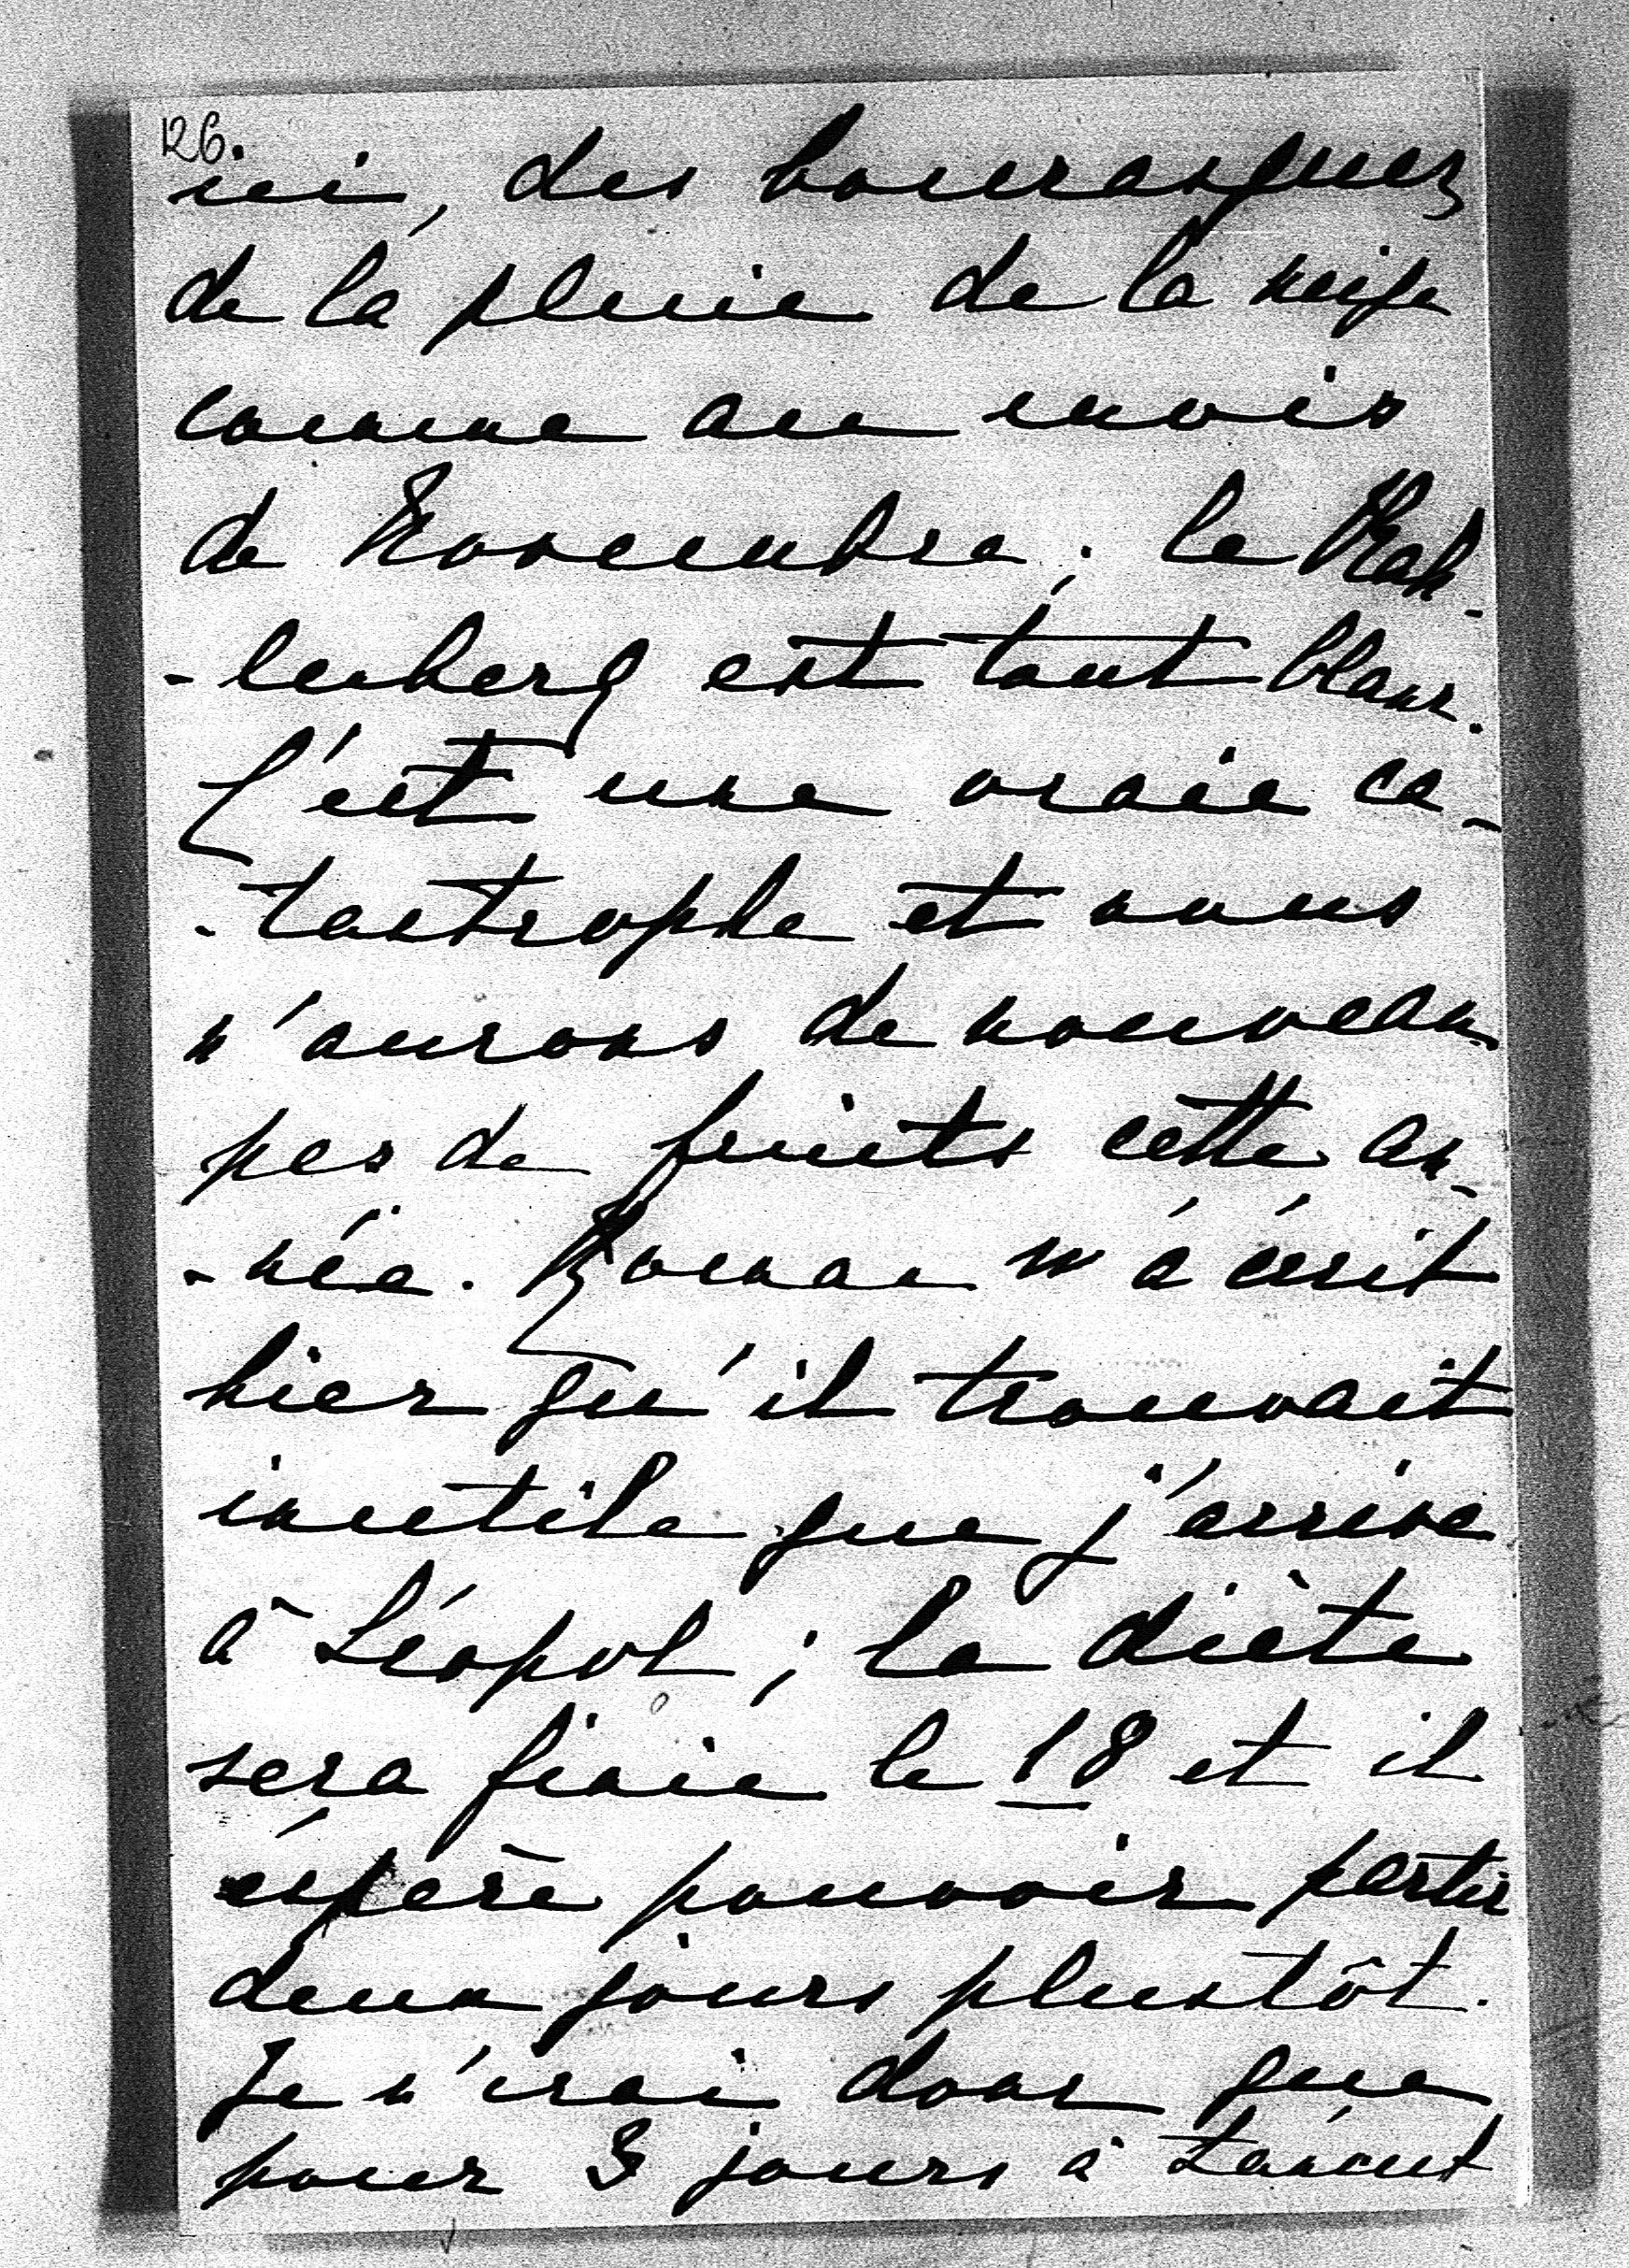 126.
ici, des bourasques
de la pluie de la neige
comme au mois
de Novembre; le Kah-
-lenberg est tout blanc.
C'est une vraie ca-
-tastrophe et nous
n'aurons de nouveau
pas de fruits cette an-
-née. Roman m'a écrit
hier qu'il trouvait
inutile que j'arrive
à Léopol; la diète
sera finie le 18 et il
éspère pouvoir partir
deux jours plustôt.
Je n'irai donc que
pour 3 jours à Łańcut